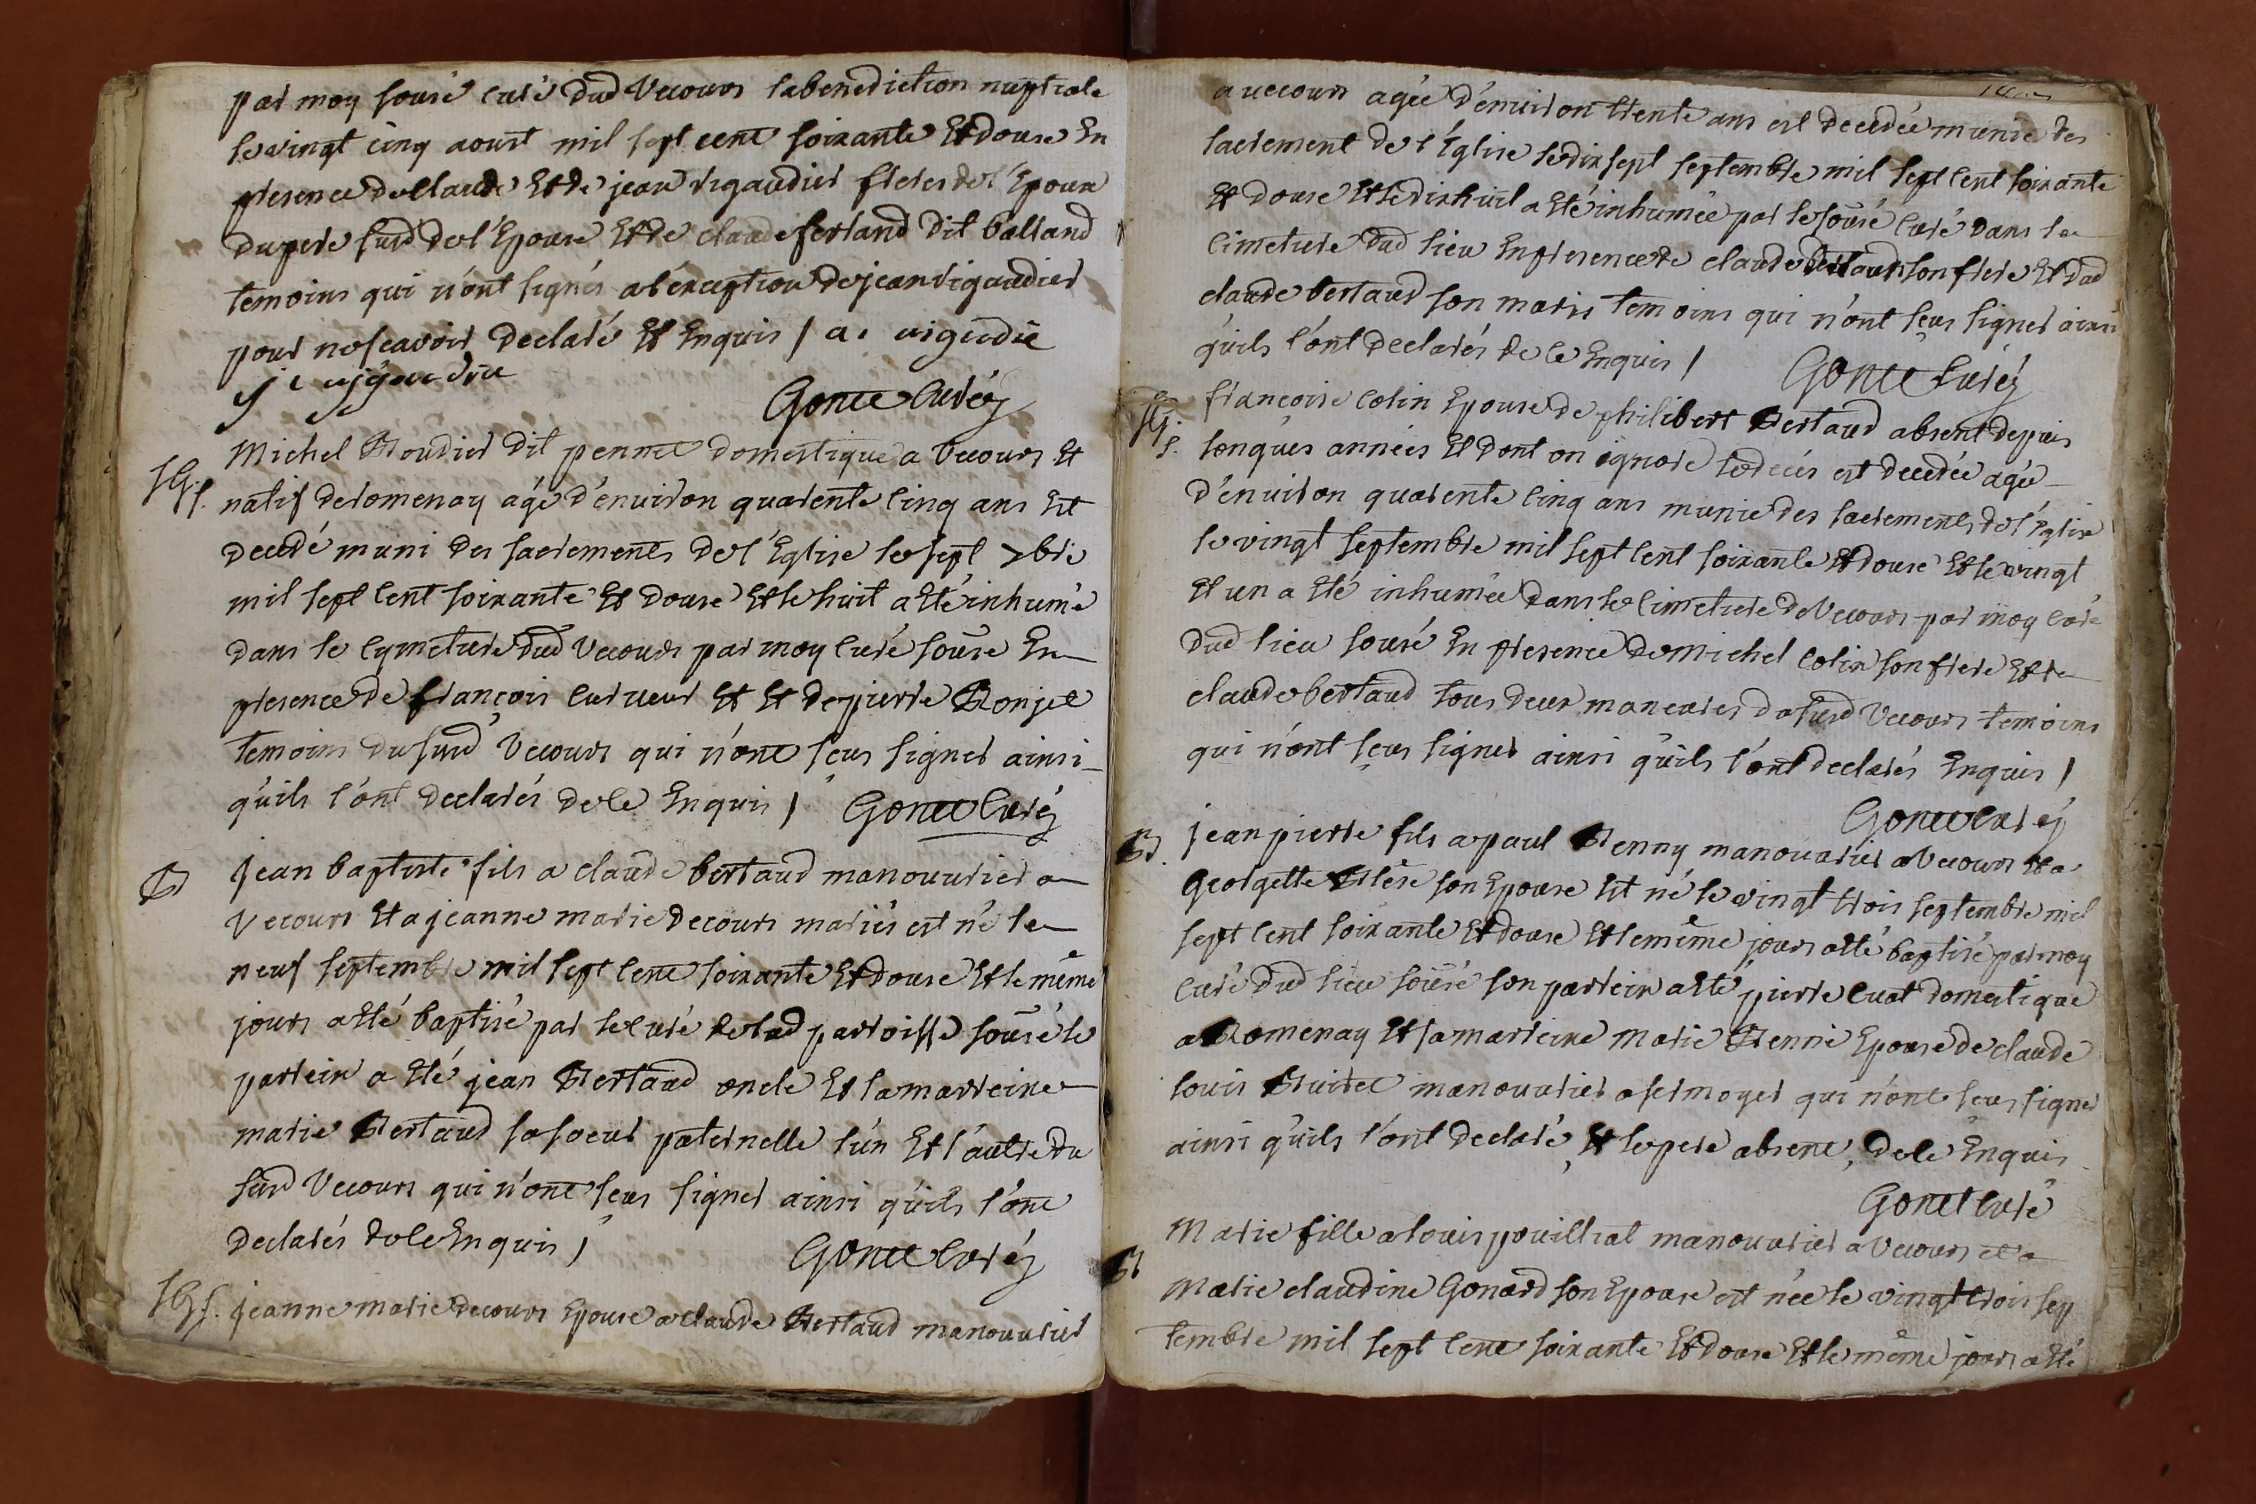 par moy sousé curé dud Vecours la benediction nuptiale
le vingt cinq aoust mil sept cent soixante Et douse En
presence de Claude Et de jean rigaudier freres de l'Epoux
du pere susd de l'Epouse Et de claude ferland dit balland
temoins qui n'ont signés a l'exception de jean rigaudier
pour ne scavoir declaré Et Enquis /
Gonet Curé
SG. S.
Michel Boudier dit pennet domestique a Vecours Et
natif de romenay agé d'environ quarente cinq ans Est
decedé muni des sacrements de l'Eglise le sept 7bre
mil sept cent soixante Et douse Et le huit a Eté inhumé
dans le cymetiere dud Vecours par moy curé sousé En
presence de françois curveur Et Et de pierre Bonjet
temoins du susd Vecours qui n'ont sçus signer ainsi
qu'ils l'ont declarés de ce Enquis / Gonet Curé
B
jean baptiste fils a claude bertaud manouvrier a
Vecours Et a jeanne marie decours mariés est né le
neuf septembre mil sept cent soixante Et douse Et le même
jours a Eté baptisé par le curé de lad parroisse sousé le
parrein a Eté jean Bertaud oncle Et la marreine
marie Bertaud sa soeur paternelle l'un Et l'autre du
susd Vecours qui n'ont sçus signer ainsi qu'ils l'ont
declarés de ce Enquis /
Gonet Curé
SG. S.
jeanne marie decours Epouse a claude Bertaud manouvrier
a vecours agée d'environ trente ans est decedée munie des
sacrement de l'Eglise le dix sept septembre mil sept cent soixante
Et douse Et le dix huit a Eté inhumée par le sousé curé dans le
cimetiere dud lieu En presence de claude son frere Et dud
claude bertaud son maris temoins qui n'ont sçus signer ainsi
qu'ils l'ont declarés de ce Enquis /
Gonet Curé
SG. S.
françoise colin Epouse de philibert Bertaud absent depuis
longues années Et dont on ignore le decés est decedée agée
d'environ quarente cinq ans munie des sacrements de l'Eglise
le vingt septembre mil sept cent soixante Et douse Et le vingt
Et un a Eté inhumée dans le cimetiere de Vecours par moy curé
dud lieu sousé En presence de Michel colin son frere Et de
claude bertaud tous deux du susd Vecours temoins
qui n'ont sçus signer ainsi qu'ils l'ont declarés Enquis /
Gonet Curé
B.
jean pierre fils a paul Benny manouvrier a Vecours Et a
Georgette son Epouse Est né le vingt trois septembre mil
sept cent soixante Et douse Et le même jours a Eté baptisé par moy
curé dud lieu sousé son parrein a Eté pierre cuat domestique
a Romenay Et sa marreine Marie Benni Epouse de claude
louis Buiret manouvrier a sermoyer qui n'ont sçus signer
ainsi qu'ils l'ont declaré, Et le pere absent, de ce Enquis
Gonet Curé
B
Marie fille a louis pouilliat manouvrier a Vecours et a
Marie claudine Gonard son Epouse est née le vingt trois sep
tembre mil sept cent soixante Et douse Et le même jours a Eté